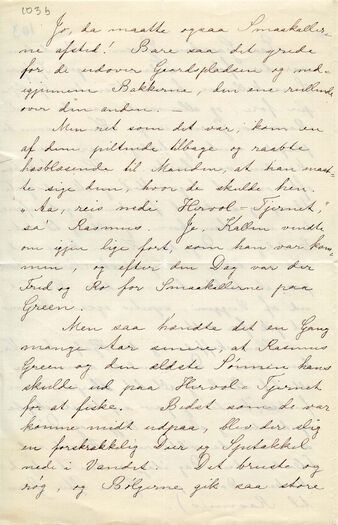 103 b
Jo, da maatte ogsaa Smaakaller-
ne afsted! Bare saa det grede
for de udover Gaardspladsen og ned-
igjennem Bakkerne, den ene rullende
over den anden. —
Men ret som det var, kom en
af dem piltende tilbage og raabte
hæsblæsende til Manden, at han maat-
te sige dem, hvor de skulde hen.
"Aa, reis nedi Hervol-Tjernet,"
sa' Rasmus. Jo, Kallen vendte
om igjen lige fort, som han var kom-
men, og efter den Dag var der
Fred og Ro for Smaakallerne paa
Green.
Men saa hændte det en Gang
mange Aar senere, at Rasmus
Green og den ældste Sønnen hans
skulde ud paa Hervol-Tjernet
for at fiske. Bedst som de var
komne midt udpaa, blev der slig
en forskrækkelig Dur og Spetakkel
nede i Vandet. Det bruste og
røg, og Bølgerne gik saa store